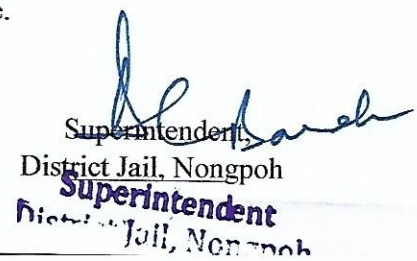 e.
Superintendent,
District Jail, Nongpoh
Superintendent
District Jail, Nongpoh